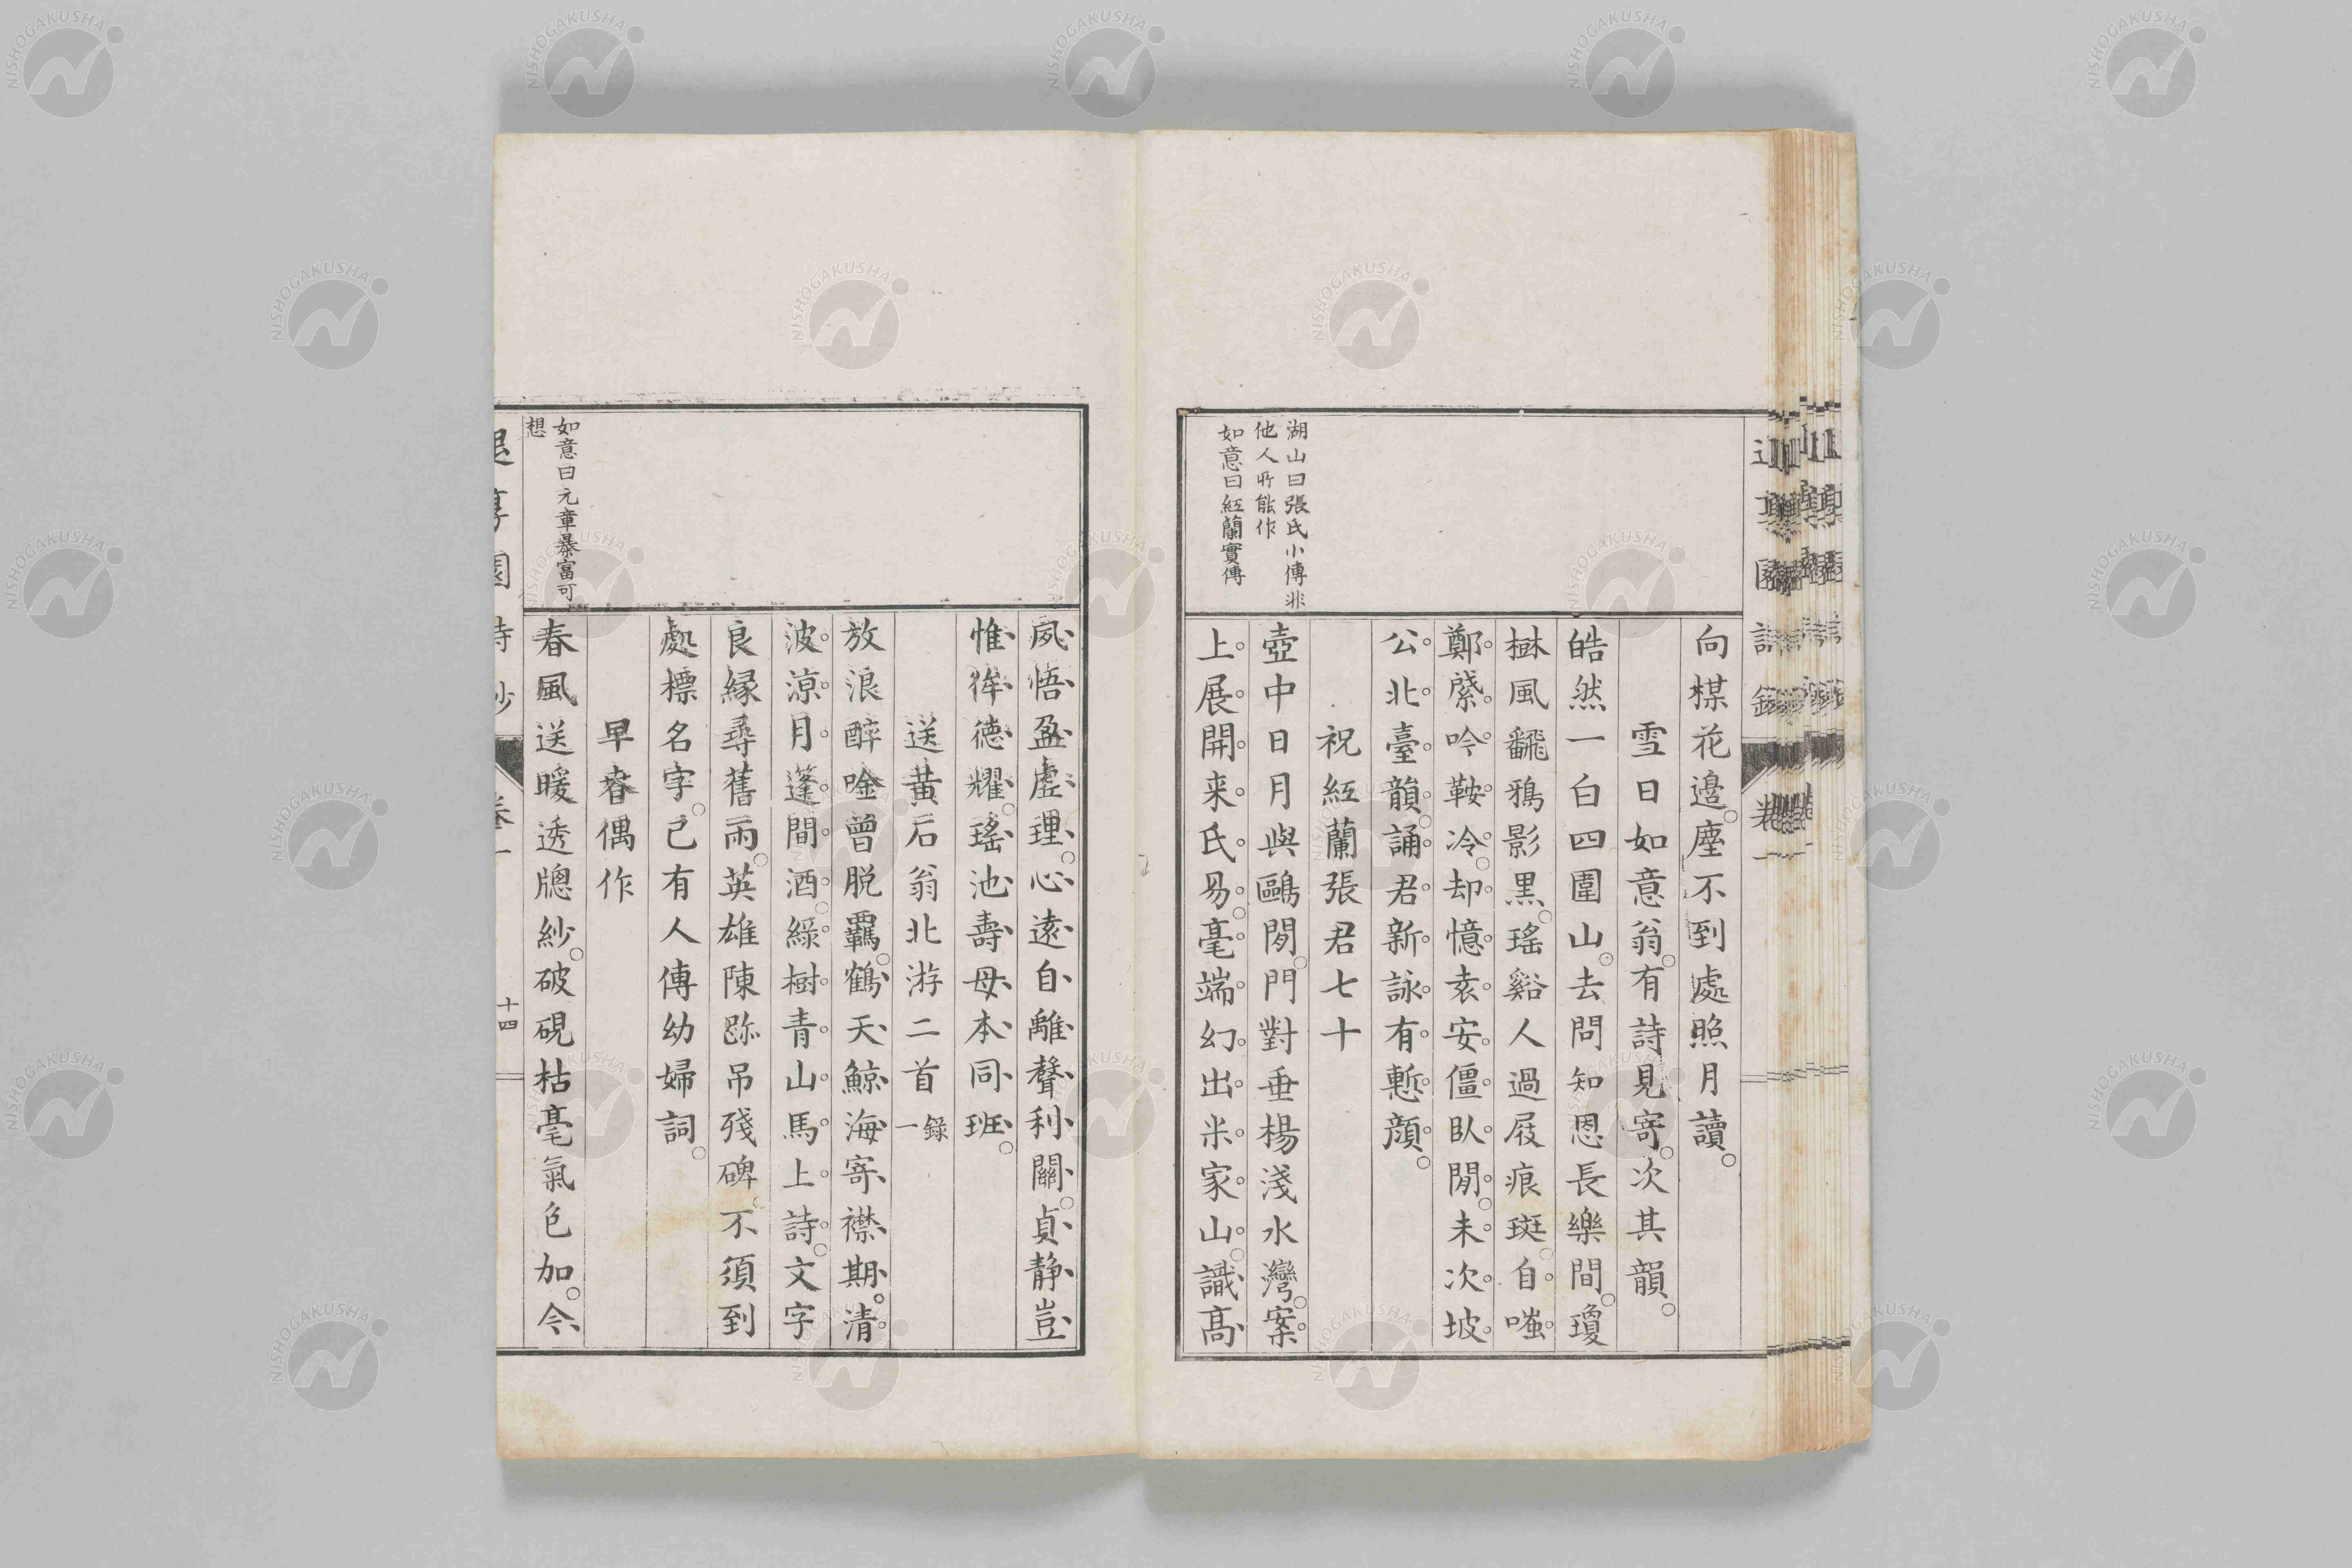 向楳花邉。塵不到處照月讀。
雪日如意翁。有詩見寄。次其韻。
皓然一白四圍山。去問知恩長樂間。瓊
樹風飜鴉影黒。瑤谿人過屐痕斑。自嗤
鄭綮吟鞍冷。却憶袁安僵臥閒。未次坡
公北臺韻。誦君新詠有慙顔。
祝紅蘭張君七十
壺中日月與鷗閒。門對垂楊淺水灣。案
上展開来氏易。毫端幻出米家山。識髙
湖山曰張氏小傳非
他人所能作
如意曰紅蘭實傳
夙悟盈虛理。心遠自離聲利關。貞静豈
惟侔德耀。瑤池壽母本同班。
送黄石翁北游二首 錄一
放浪醉唫曾脱羈。鶴天鯨海寄襟期。清
波涼月蓬間酒。綠樹青山馬上詩。文字
良縁尋舊雨。英雄陳跡吊殘碑。不須到
處標名字。己有人傳幼婦詞。
早春偶作
春風送暖透牕紗。破硯枯毫氣色加。今
如意曰元章暴富可
想
詩鈔
十四
NISHOGAKUSHA